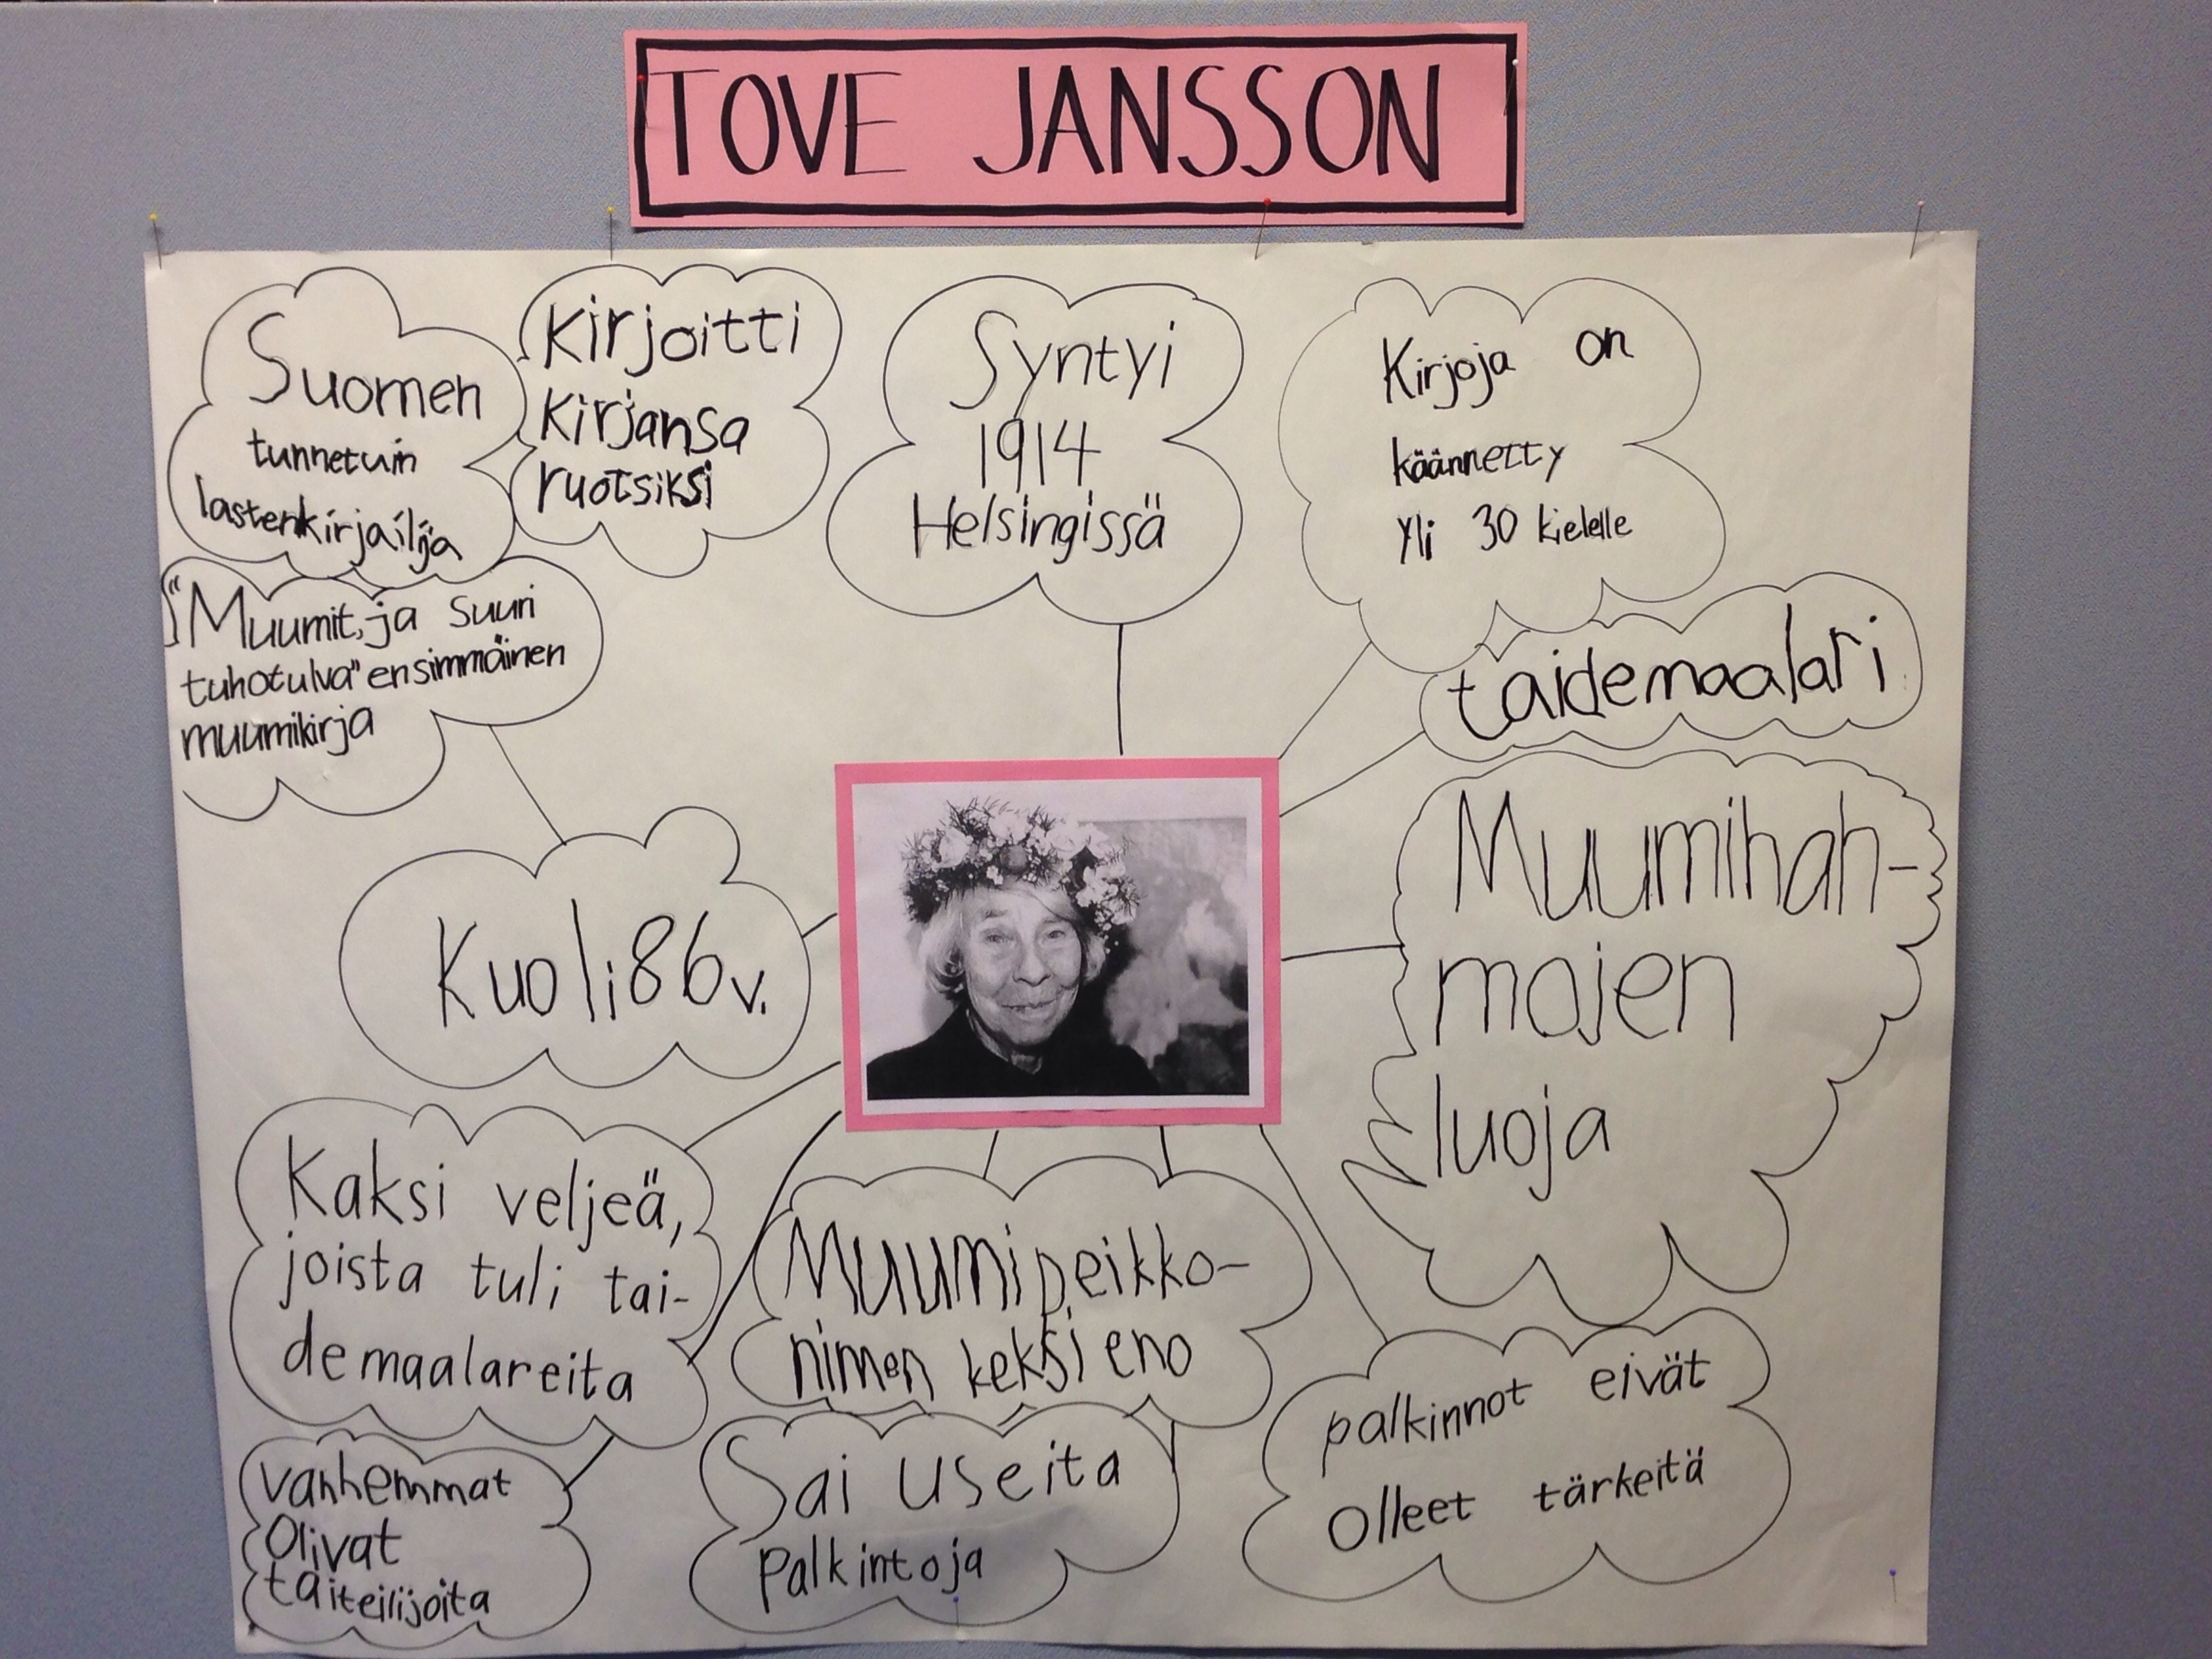 TOVE JANSSON
Suomen
tunnetuin
lastenkirjailija
Kirjoitti
kirjansa
ruotsiksi
Syntyi
1914
Helsingissä
Kirjoja on
käännetty
yli 30 kielelle
"Muumit, ja suuri
tuhotulva" ensimmäinen
muumikirja
taidemaalari
Kuoli 86 v.
Muumihah-
mojen
luoja
Kaksi veljeä,
joista tuli tai-
demaalareita
Muumipeikko-
nimen keksi eno
palkinnot eivät
olleet tärkeitä
vanhemmat
olivat
taiteilijoita
Sai useita
palkintoja